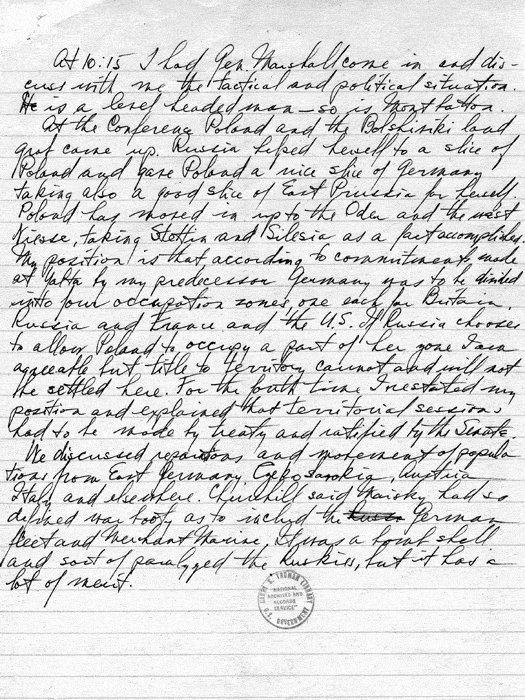 At 10:15 I had Gen. Marshall come in and dis-
cuss with me the tactical and political situation.
He is a level headed man - so is Mountbatton.
At the Conference Poland and the Bolshiviki land
grab came up. Russia helped herself to a slice of
Poland and gave Poland a nice slice of Germany
taking also a good slice of East Prussia for herself.
Poland has moved in up to the Oder and the west
Niesse, taking Stettin and Silesia as a fact accomplished.
My position is that according to commitments made
at Yalta by my predecessor Germany was to be divided
into four occupation zones, one each for Britain,
Russia and France and the U.S. If Russia chooses
to allow Poland to occupy a part of her zone I am
agreeable but title to territory cannot and will not
be settled here. For the fourth time I restated my
position and explained that territorial sessions
had to be made by treaty and ratified by the Senate.
We discussed reparations and movement of popula
tions from East Germany, Austria
Italy and elsewhere. Churchill said Maisky had so
defined war booty as to include the German
fleet and Merchant Marine. It was a bomb shell
and sort of paralyzed the Ruskies, but it has a
lot of merit.
HARRY S. TRUMAN LIBRARY
NATIONAL
ARCHIVES AND
RECORDS
SERVICE
U.S. GOVERNMENT